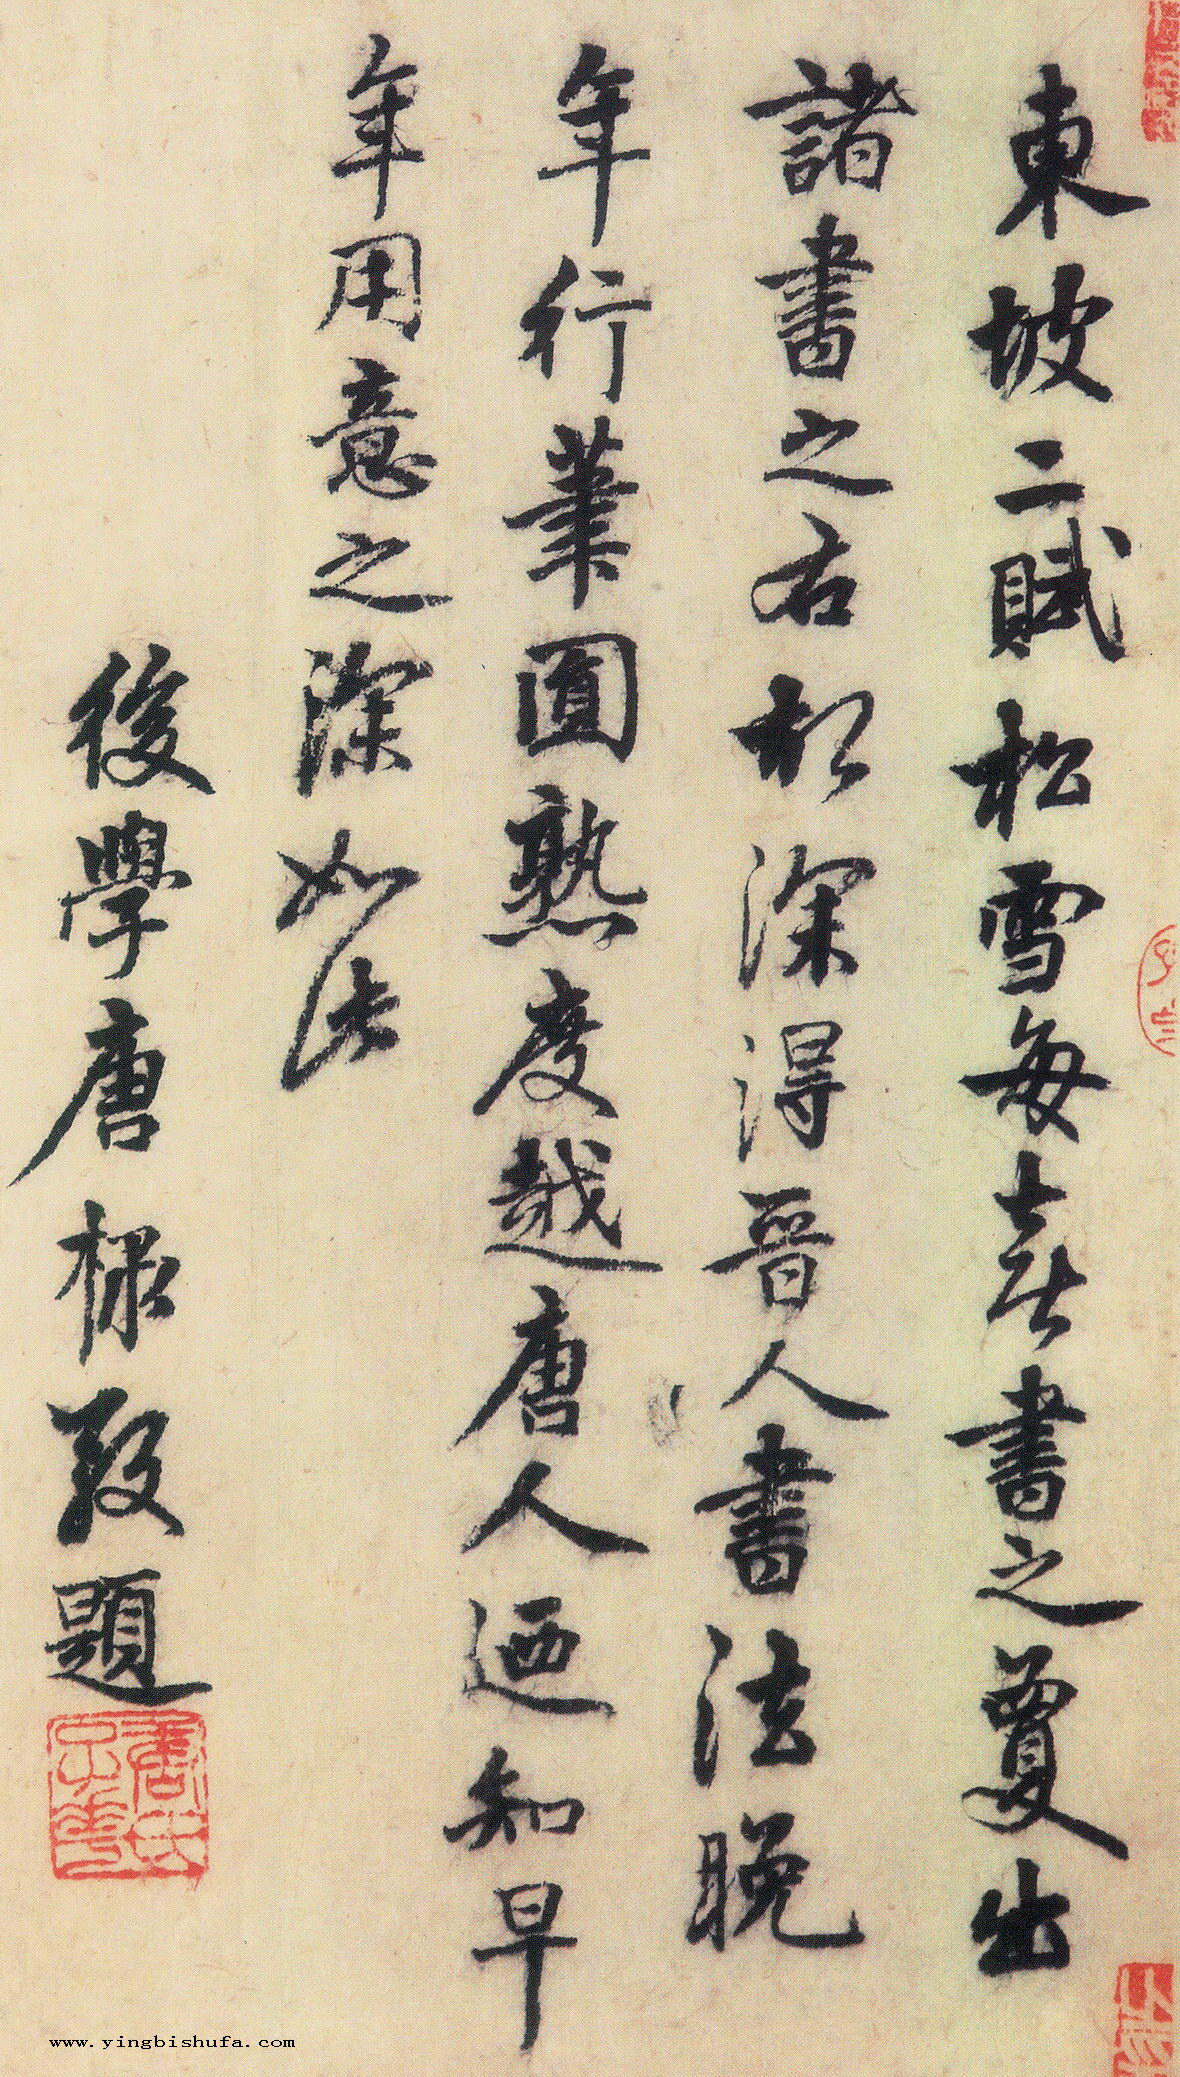 東坡二賦松雪每喜書之夐出
諸書之右初深得晉人書法晚
年行筆圓熟度越唐人迺知早
年用意之深如此
後學唐棣敬題
唐氏子華
www.yingbishufa.com